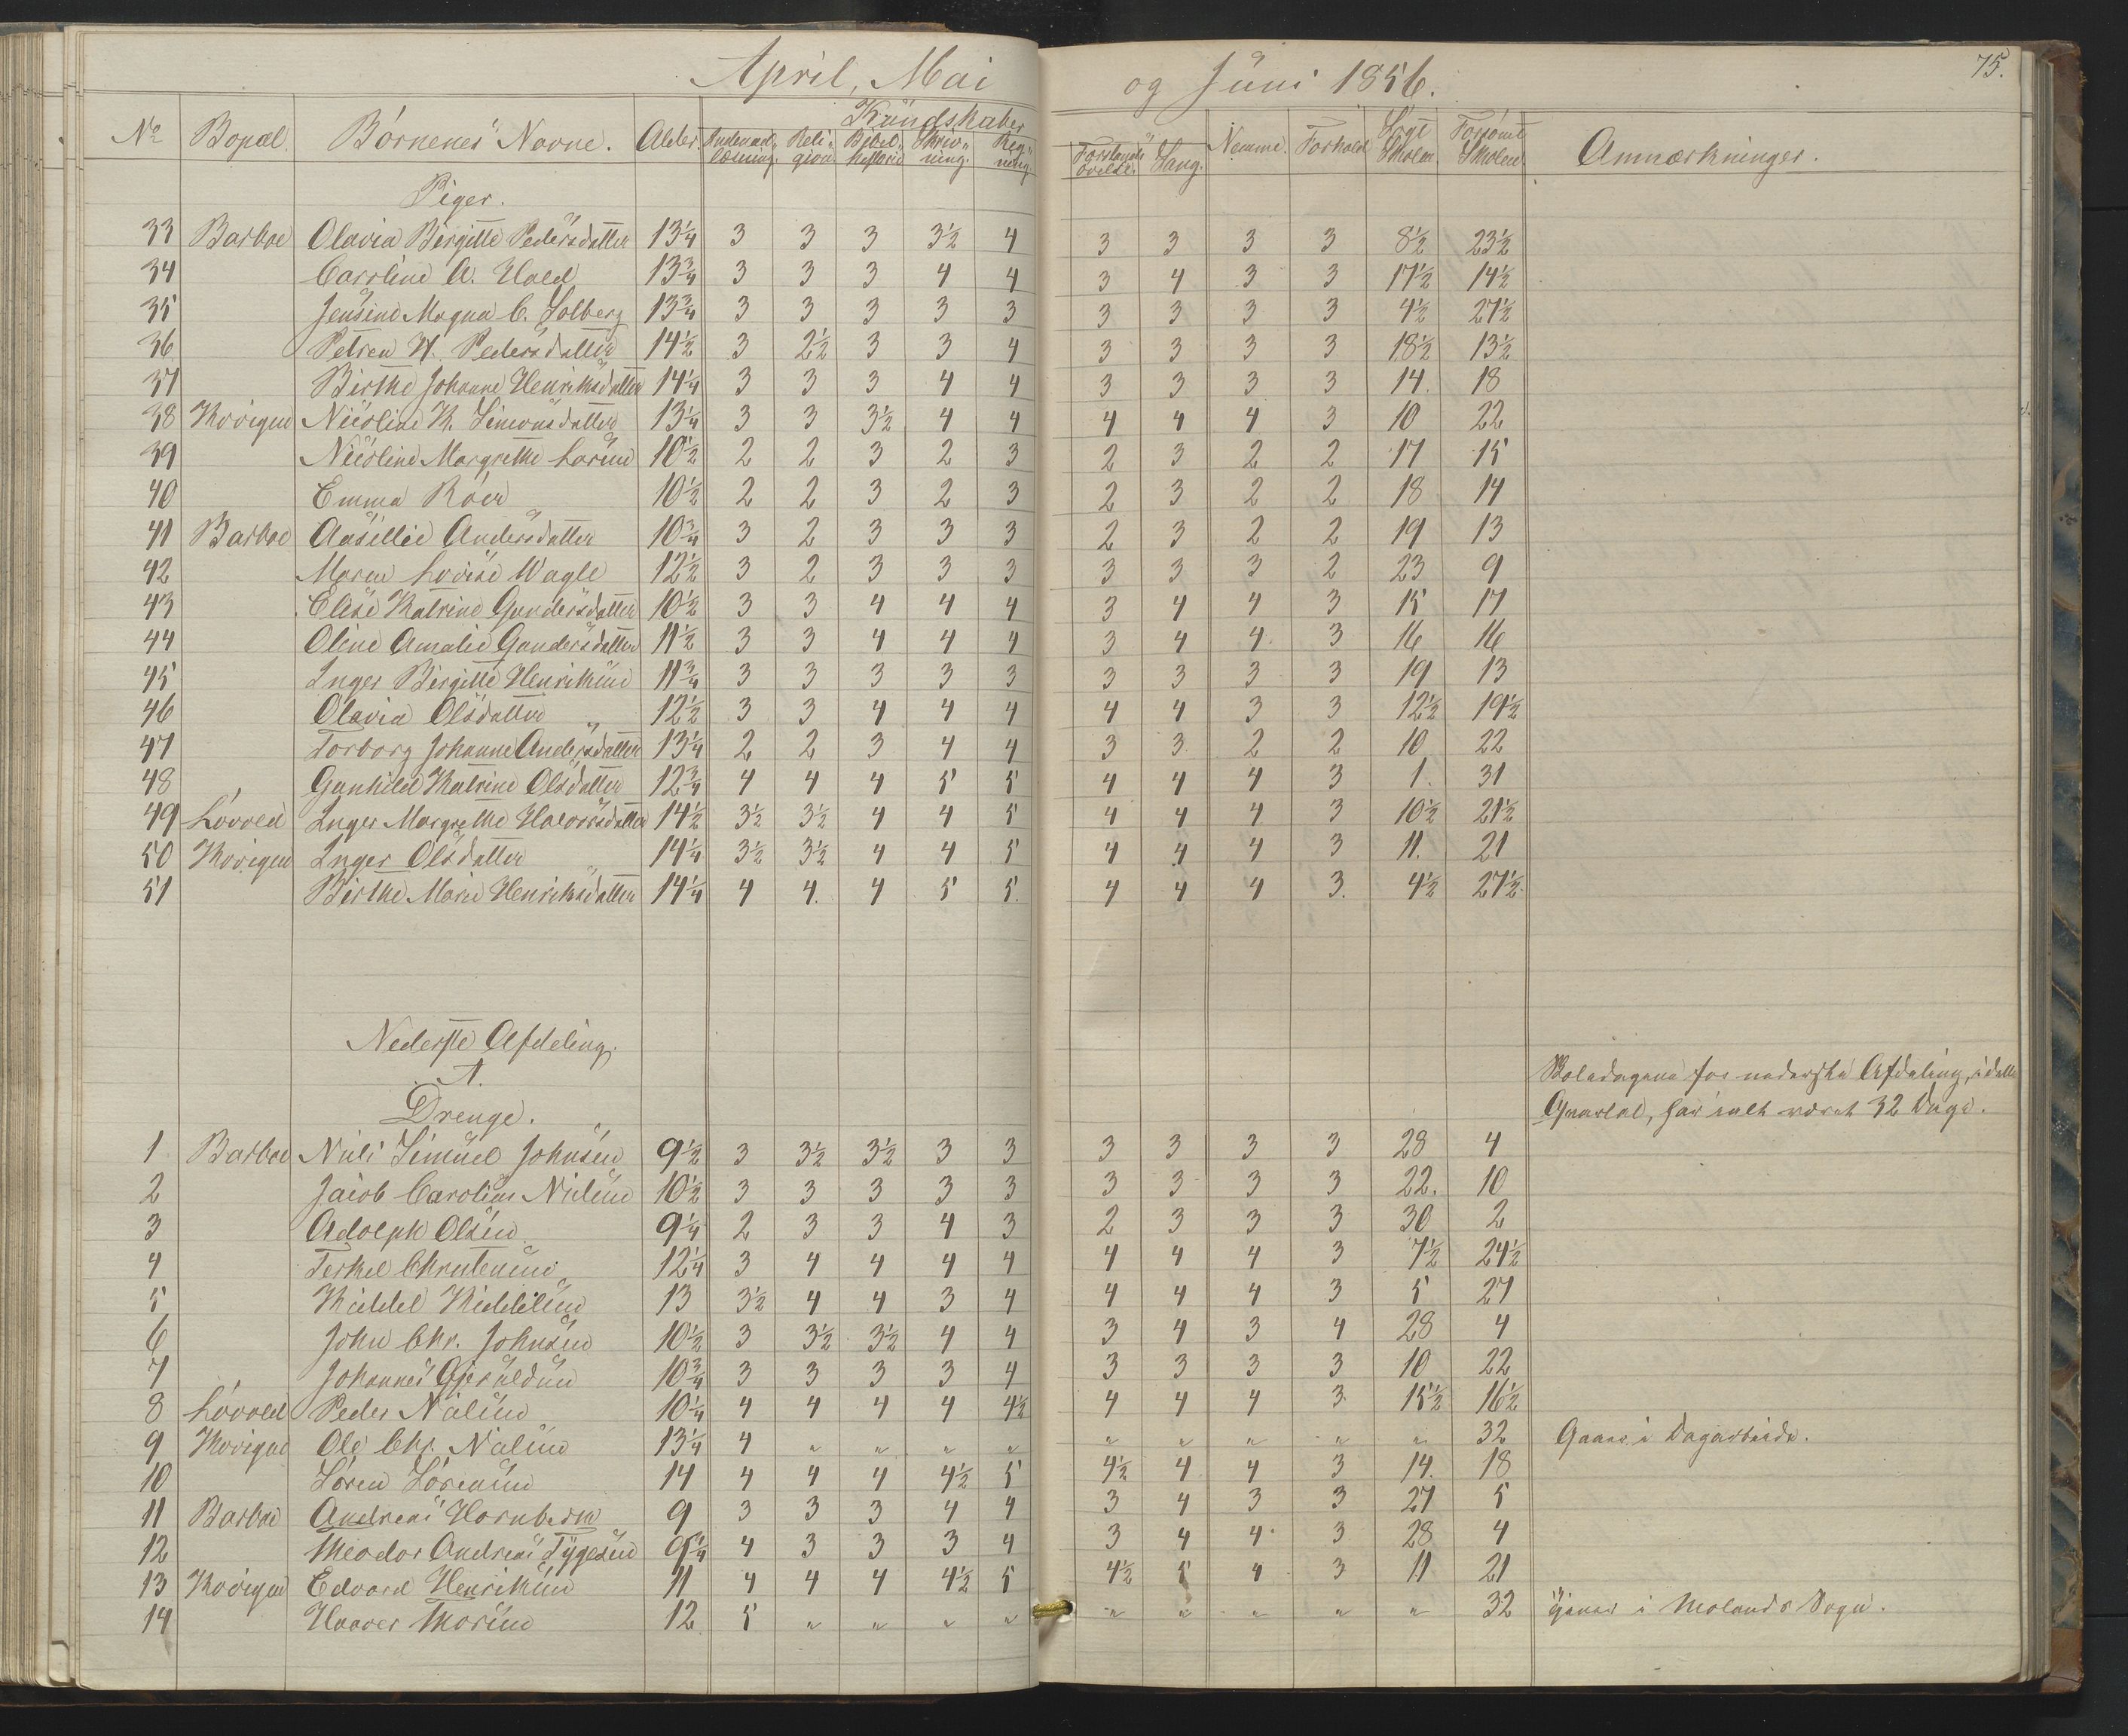 April, Mai og Juni 1856. 75.
No Bopæl. Børnenes Navne. Alder. Kundskaber Nemme. Forhold Søgt Skolen Forsømt Skolen Anmærkninger.
Indenad læsning. Reli- gion Bibel- historie Skriv- ning. Reg- ning Forstands øvelse. Sang.
Piger.
33 Barboe Olavia Birgitte Pedersdatter 13 1/4 3 3 3 3 1/2 4 3 3 3 3 8 1/2 23 1/2
34 Caroline A. Hald 13 3/4 3 3 3 4 4 3 4 3 3 17 1/2 14 1/2
35 Jensine Magna C. Solberg 13 3/4 3 3 3 3 3 3 3 3 3 4 1/2 27 1/2
36 Petrea N. Pedersdatter 14 1/2 3 2 1/2 3 3 4 3 3 3 3 18 1/2 13 1/2
37 Birthe Johanne Henriksdatter 14 1/4 3 3 3 4 4 3 3 3 3 14. 18
38 Kovigen Nicoline K. Simonsdatter 13 1/4 3 3 3 1/2 4 4 4 4 4 3 10 22
39 Nicoline Margrethe Larsen 10 1/2 2 2 3 2 3 2 3 2 2 17 15
40 Emma Röer 10 1/2 2 2 3 2 3 2 3 2 2 18 14
41 Barboe Aasillie Andersdatter 10 3/4 3 2 3 3 3 2 3 2 2 19 13
42 Maren Lovise Wagle 12 1/2 3 2 3 3 3 3 3 3 2 23 9
43 Elise Katrine Gundersdatter 10 1/2 3 3 4 4 4 3 4 4 3 15 17
44 Oline Amalie Gundersdatter 11 1/2 3 3 4 4 4 3 4 4. 3 16 16
45 Inger Birgitte Henriksen 11 3/4 3 3 3 3 3 3 3 3 3 19 13
46 Olavia Olsdatter 12 1/2 3 3 4 4 4 4 4 3 3 12 1/2 19 1/2
47 Torborg Johanne Andersdatter 13 1/4 2 2 3 4 4 3 3 2 2 10 22
48 Gunhild Katrine Olsdatter 12 3/4 4 4 4 5 5 4 4 4 3 1. 31
49 Løvold Inger Margrethe Halvorsdatter 14 1/2 3 1/2 3 1/2 4 4 5 4 4 4 3 10 1/2 21 1/2
50 Kovigen Inger Olsdatter 14 1/4 3 1/2 3 1/2 4 4 5 4 4 4 3 11. 21
51 Birthe Marie Henriksdatter 14 1/4 4 4. 4 5 5. 4 4 4 3. 4 1/2 27 1/2
Nederste Afdeling.
A.
Drenge.
Skoledagene for nederste Afdeling, i dette
Qvartal, har ialt været 32 Dage.
1 Barboe Nils Simuel Johnsen 9 1/2 3 3 1/2 3 1/2 3 3 3 3 3 3 28 4
2 Jacob Carolius Nielsen 10 1/2 3 3 3 3 3 3 3 3 3 22. 10
3 Adolph Olsen 9 1/4 2 3 3 4 3 2 3 3 3 30 2
4 Terkel Christensen 12 1/4 3 4 4 4 4 4 4 4 3 7 1/2 24 1/2
5 Kiddel Kiddelsen 13 3 1/2 4 4 3 4 4 4 4 3 5 27
6 John Chr. Johnsen 10 1/2 3 3 1/2 3 1/2 4 4 3 4 3 4 28 4
7 Johannes Gjeruldsen 10 3/4 3 3 3 3 4 3 3 3 3 10 22
8 Løvold Peder Nielsen 10 1/4 4 4 4 4 4 1/2 4 4 4 3. 15 1/2 16 1/2
9 Kovigen Ole Chr. Nielsen 13 1/4 4 " " " " " " " " " 32 Gaaer i Dagarbeide.
10 Søren Sørensen 14 4 4 4 4 1/2 5 4 1/2 4 4 3 14. 18
11 Barboe Andreas Hornbech 9 3 3 3 4 4 3 4 3 3 27 5
12 Theodor Andreas Tygesen 9 1/4 4 3 3 3 4 3 4 4 3 28 4
13 Kovigen Edvard Henriksen 11 4 4 4 4 1/2 5 4 1/2 5 4 3 11 21
14 Haaver Thorsen 12 5 " " " " " " " " " 32 i Molands Sogn.